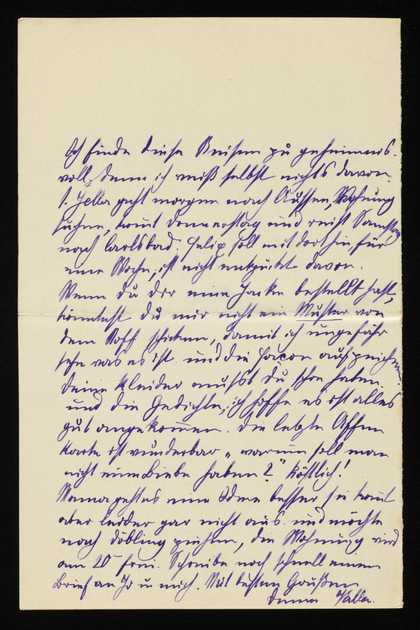 Ich finde diese Reisen zu geheimnis-
voll, denn ich weiß selbst nichts davon.
1. Yella geht morgen nach Aussee, Wohnung
suchen, kommt Donnerstag und reist Samstag
nach Carlsbad. Felix soll mit dorthin, für
eine Woche, ist nicht entzückt davon.
Wenn du dir eine Jacke bestellt hast,
könntest du mir nicht ein Muster von
dem Stoff schicken, damit ich ungefähr
sehe was es ist und die Façon aufzeichnen.
Deine Kleider mußt du schon haben
und die Gedichte, ich hoffe es ist alles
gut angekommen. Die letzte
Karte ist wunderbar „warum soll man
nicht eine Liebe haben?" Köstlich!
Mama geht es eine Idee besser sie
aber leider gar nicht aus und möchte
nach Döbling ziehen, die Wohnung wird
am 20 frei. Schreibe noch schnell einen
Brief an u mich. Mit besten Grüßen
Deine